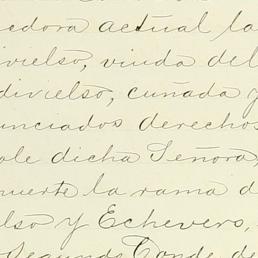 edora actual la
ivielso, viuda del
divielso, cuñada y
unciados derechos
ale dicha Señora,
muerte la rama d
lso y Echevers,
Segundo Conde de